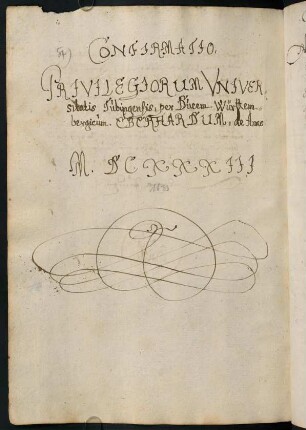 CONFIRMATIO.
PRIVILEGIORUM UNIVER
sitatis Tubingensis, per Ducem Württem-
bergicum. EBERHARDUM, de Anno
M. DCXXXIII
1633